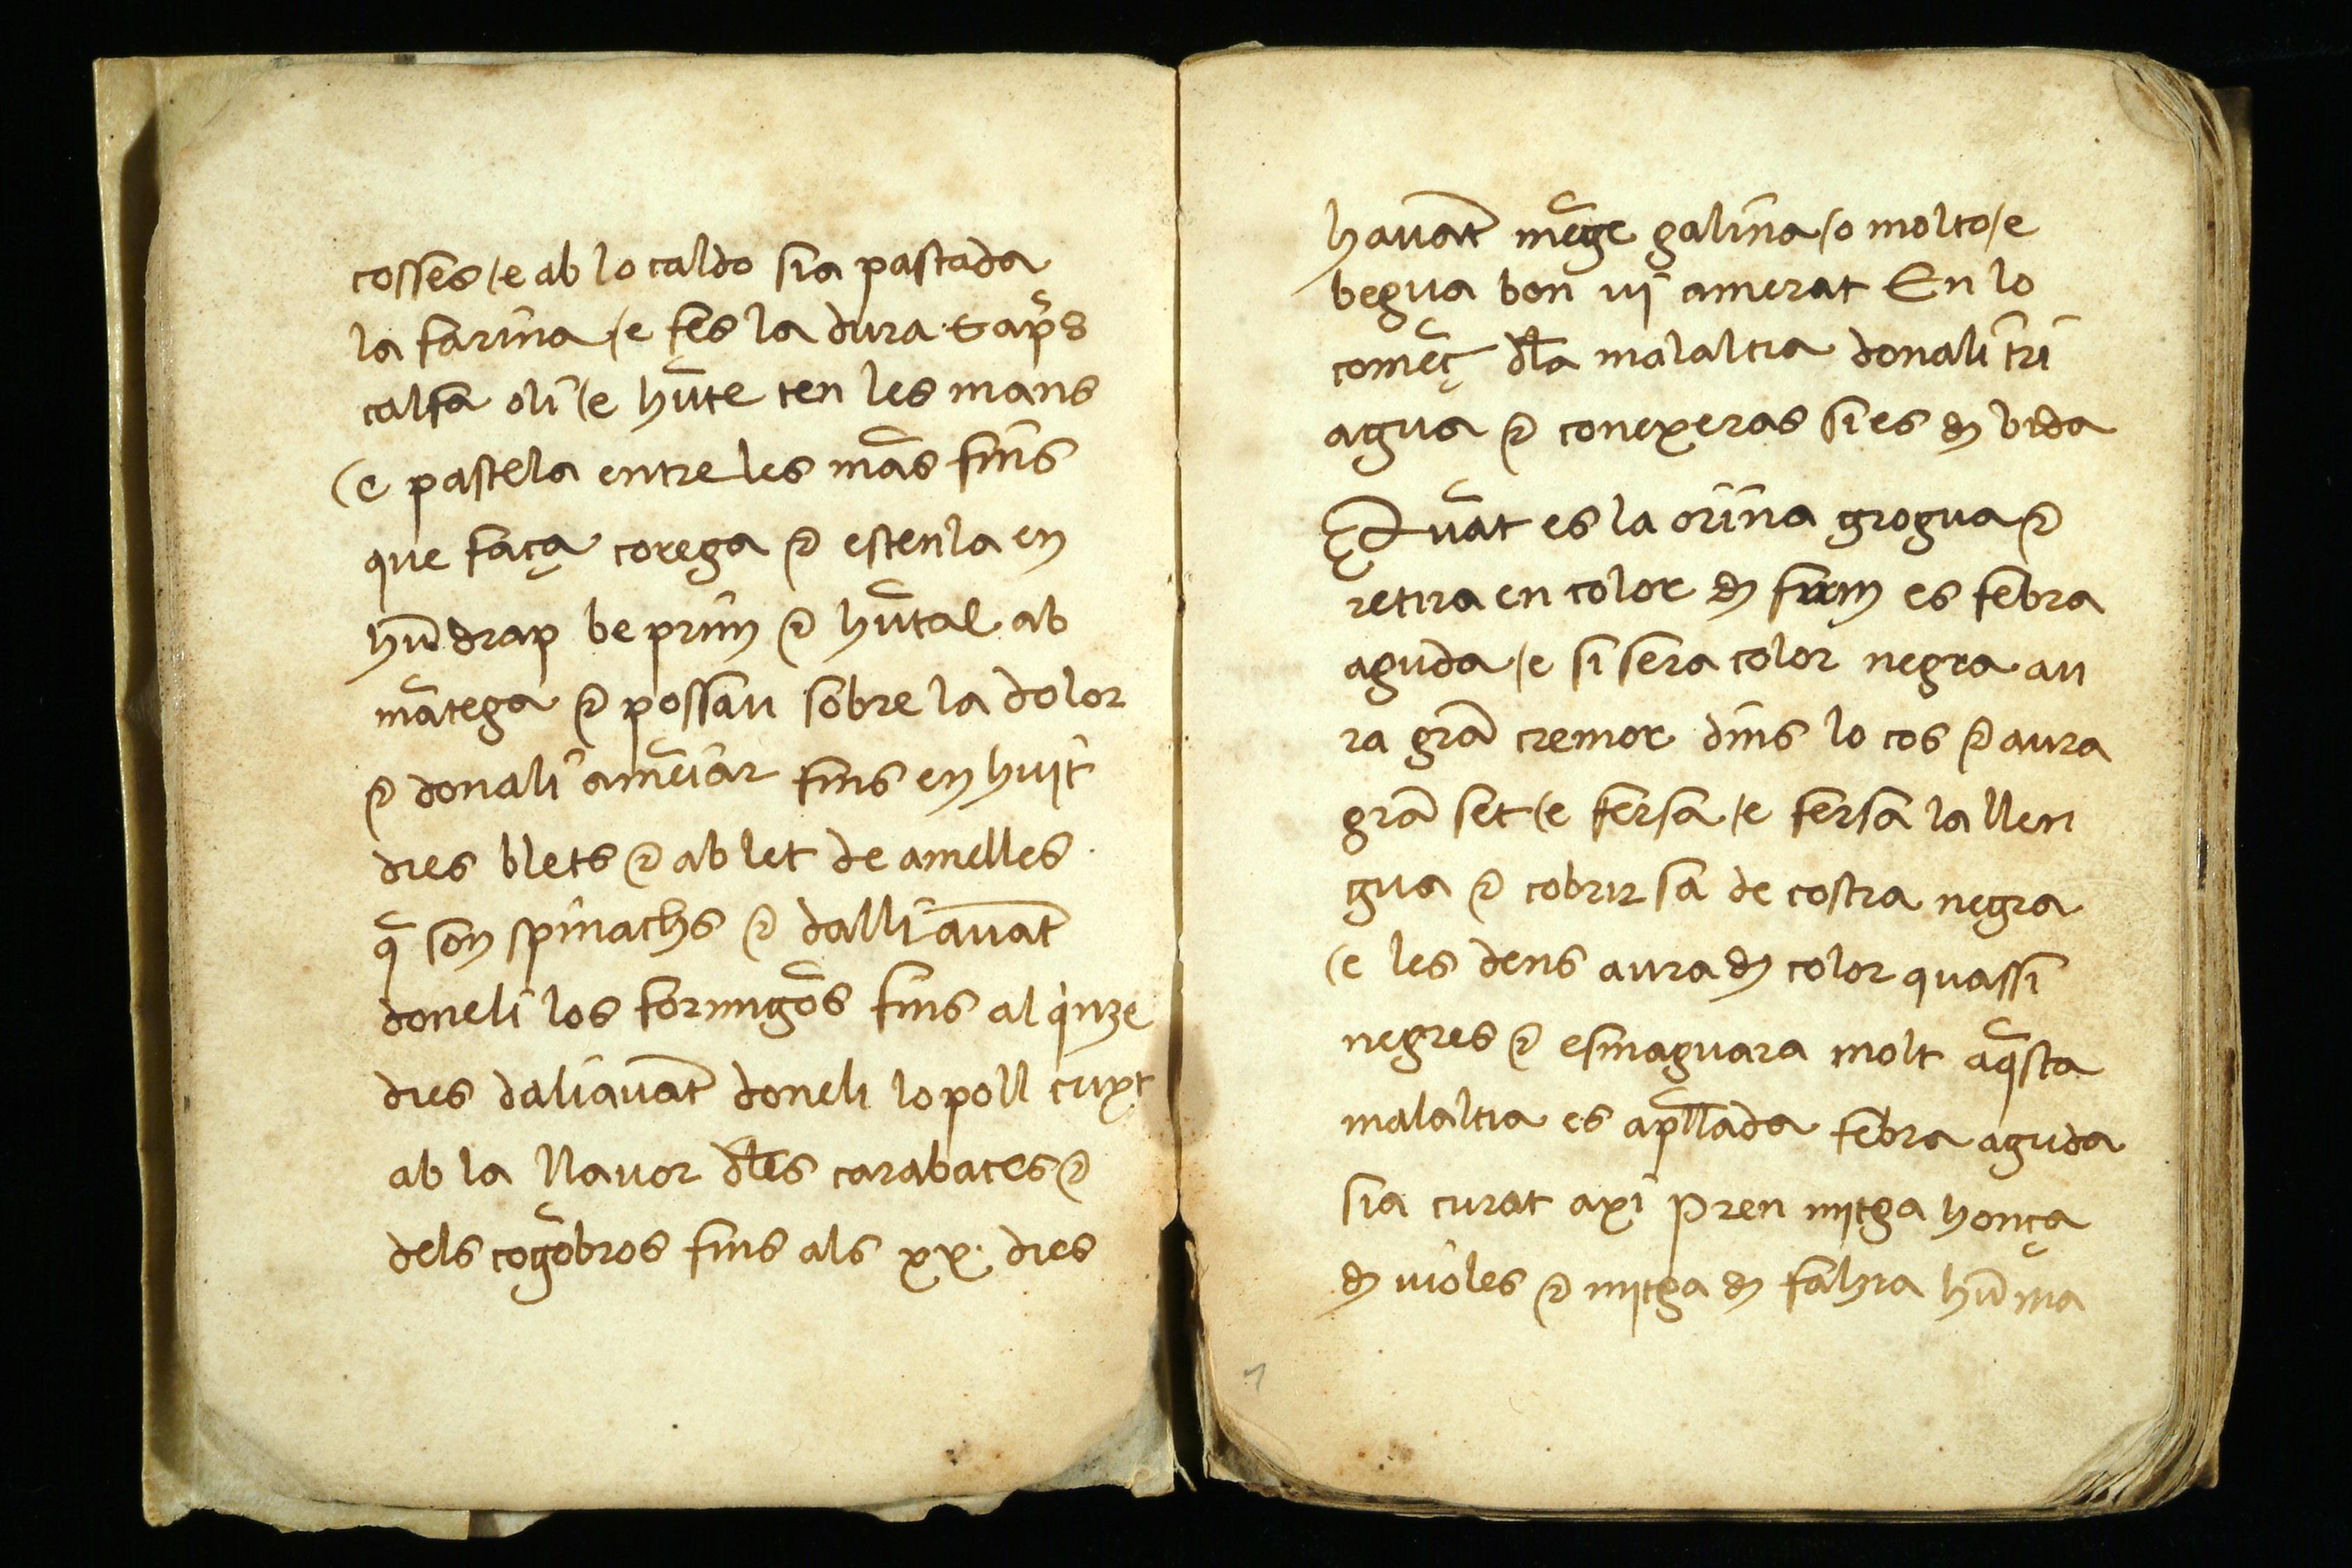 cosses /e ab lo caldo sia pastada
la farina /e fes la dura & ap̃s
calfa oli /e hũte ten les mans
/e pastela entre les mãs fins
que faça corega ⁊ estenla en
hũ drap be prim ⁊ hũtal ab
mãtega ⁊ possau sobre la dolor
⁊ donali a mẽiar fins en huit
dies blets ⁊ ab let de amelles
q̃ son spinachs ⁊ dalli avãt
doneli los formigõs fins al qinze
dies dali avãt doneli lo poll cuyt
ab la llavor dles carabaces ⁊
dels cogõbros fins als xx. dies
havãt mẽge galina /o molto /e
begua bon vi amerat En lo
comẽç dla malaltia donali tri
agua ⁊ conexeras si es d vida
Quãt es la orina grogua ⁊
retira en color d fum es febra
aguda /e si sera color negra au
ra grã cremor dins lo cos ⁊ aura
grã set /e fersa /e fersa la llen
gua ⁊ cobrir sa de costra negra
/e les dens aura d color quassi
negres ⁊ esmaguara molt aq̃sta
malaltia es apllada febra aguda
sia curat axi Pren mitga honça
d violes ⁊ mitga d falzia hũ ma
7